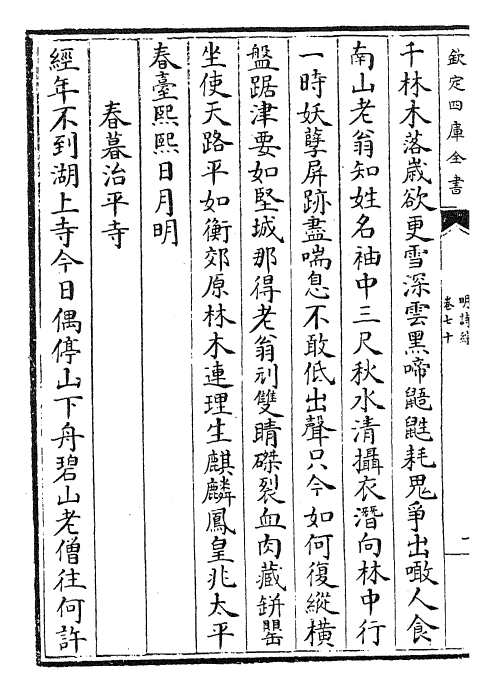 欽定四庫全書
明詩綜
卷七十
千林木落歲欲更雪深雲黑啼鼯鼪耗鬼爭出噉人食
南山老翁知姓名袖中三尺秋水清攝衣潛向林中行
一時妖孽屏跡盡喘息不敢低出聲只今如何復縱橫
盤踞津要如堅城那得老翁刓雙睛磔裂血肉藏缾罌
坐使天路平如衡郊原林木連理生麒麟鳳皇兆太平
春臺熙熙日月明
春暮治平寺
經年不到湖上寺今日偶停山下舟碧山老僧往何許